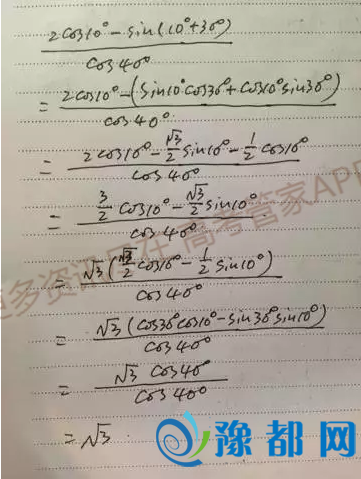 2cos10° - sin(10°+30°)
cos40°
= 2cos10° - (sin10°cos30° + cos10°sin30°)
cos40°
= 2cos10° - √3/2 sin10° - 1/2 cos10°
cos40°
= 3/2 cos10° - √3/2 sin10°
cos40°
= √3(√3/2 cos10° - 1/2 sin10°)
cos40°
= √3(cos30°cos10° - sin30°sin10°)
cos40°
= √3 cos40°
cos40°
= √3
更多资讯尽在 高考管家APP
豫都网